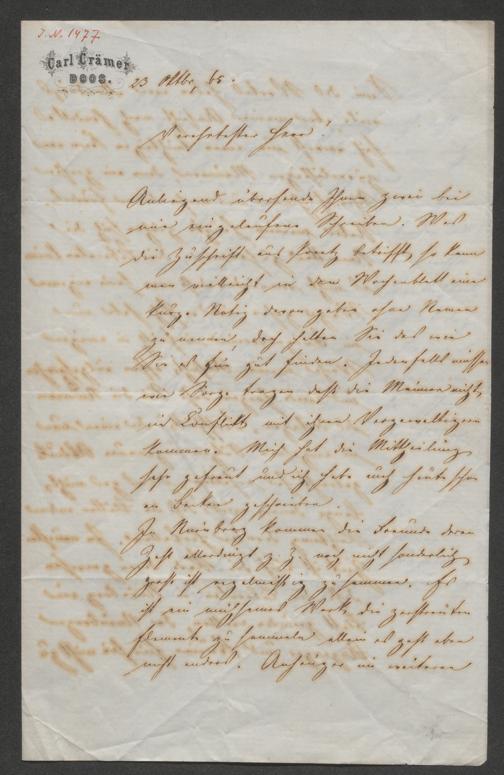 J. N. 1477
Carl Crämer
DOOS.
23 Oktbr, 65.
Verehrtester Herr!
Anliegend übersende Ihnen zwei bei
mir eingelaufene Schreiben. Was
die Zuschrift aus betrifft, so kann
man vielleicht in dem Wochenblatt eine
kurze Notiz davon geben ohne Namen
zu nennen, doch halten Sie das wie
Sie es für gut finden. Jedenfalls müssen
wir Sorge tragen daß die nicht
in Conflikt mit ihren Vergewaltigern
kommen. Mich hat die Mittheilung
sehr gefreut und ich habe auch heute schon
an geschrieben.
In Nürnberg kommen die Freunde deren
Zahl allerdings z. Z. noch nicht sonderlich
groß ist regelmäßig zusammen. Es
ist ein mühsames Werk, die zerstreuten
Elemente zu sammeln allein es geht eben
nicht anders. Anhänger im weiteren